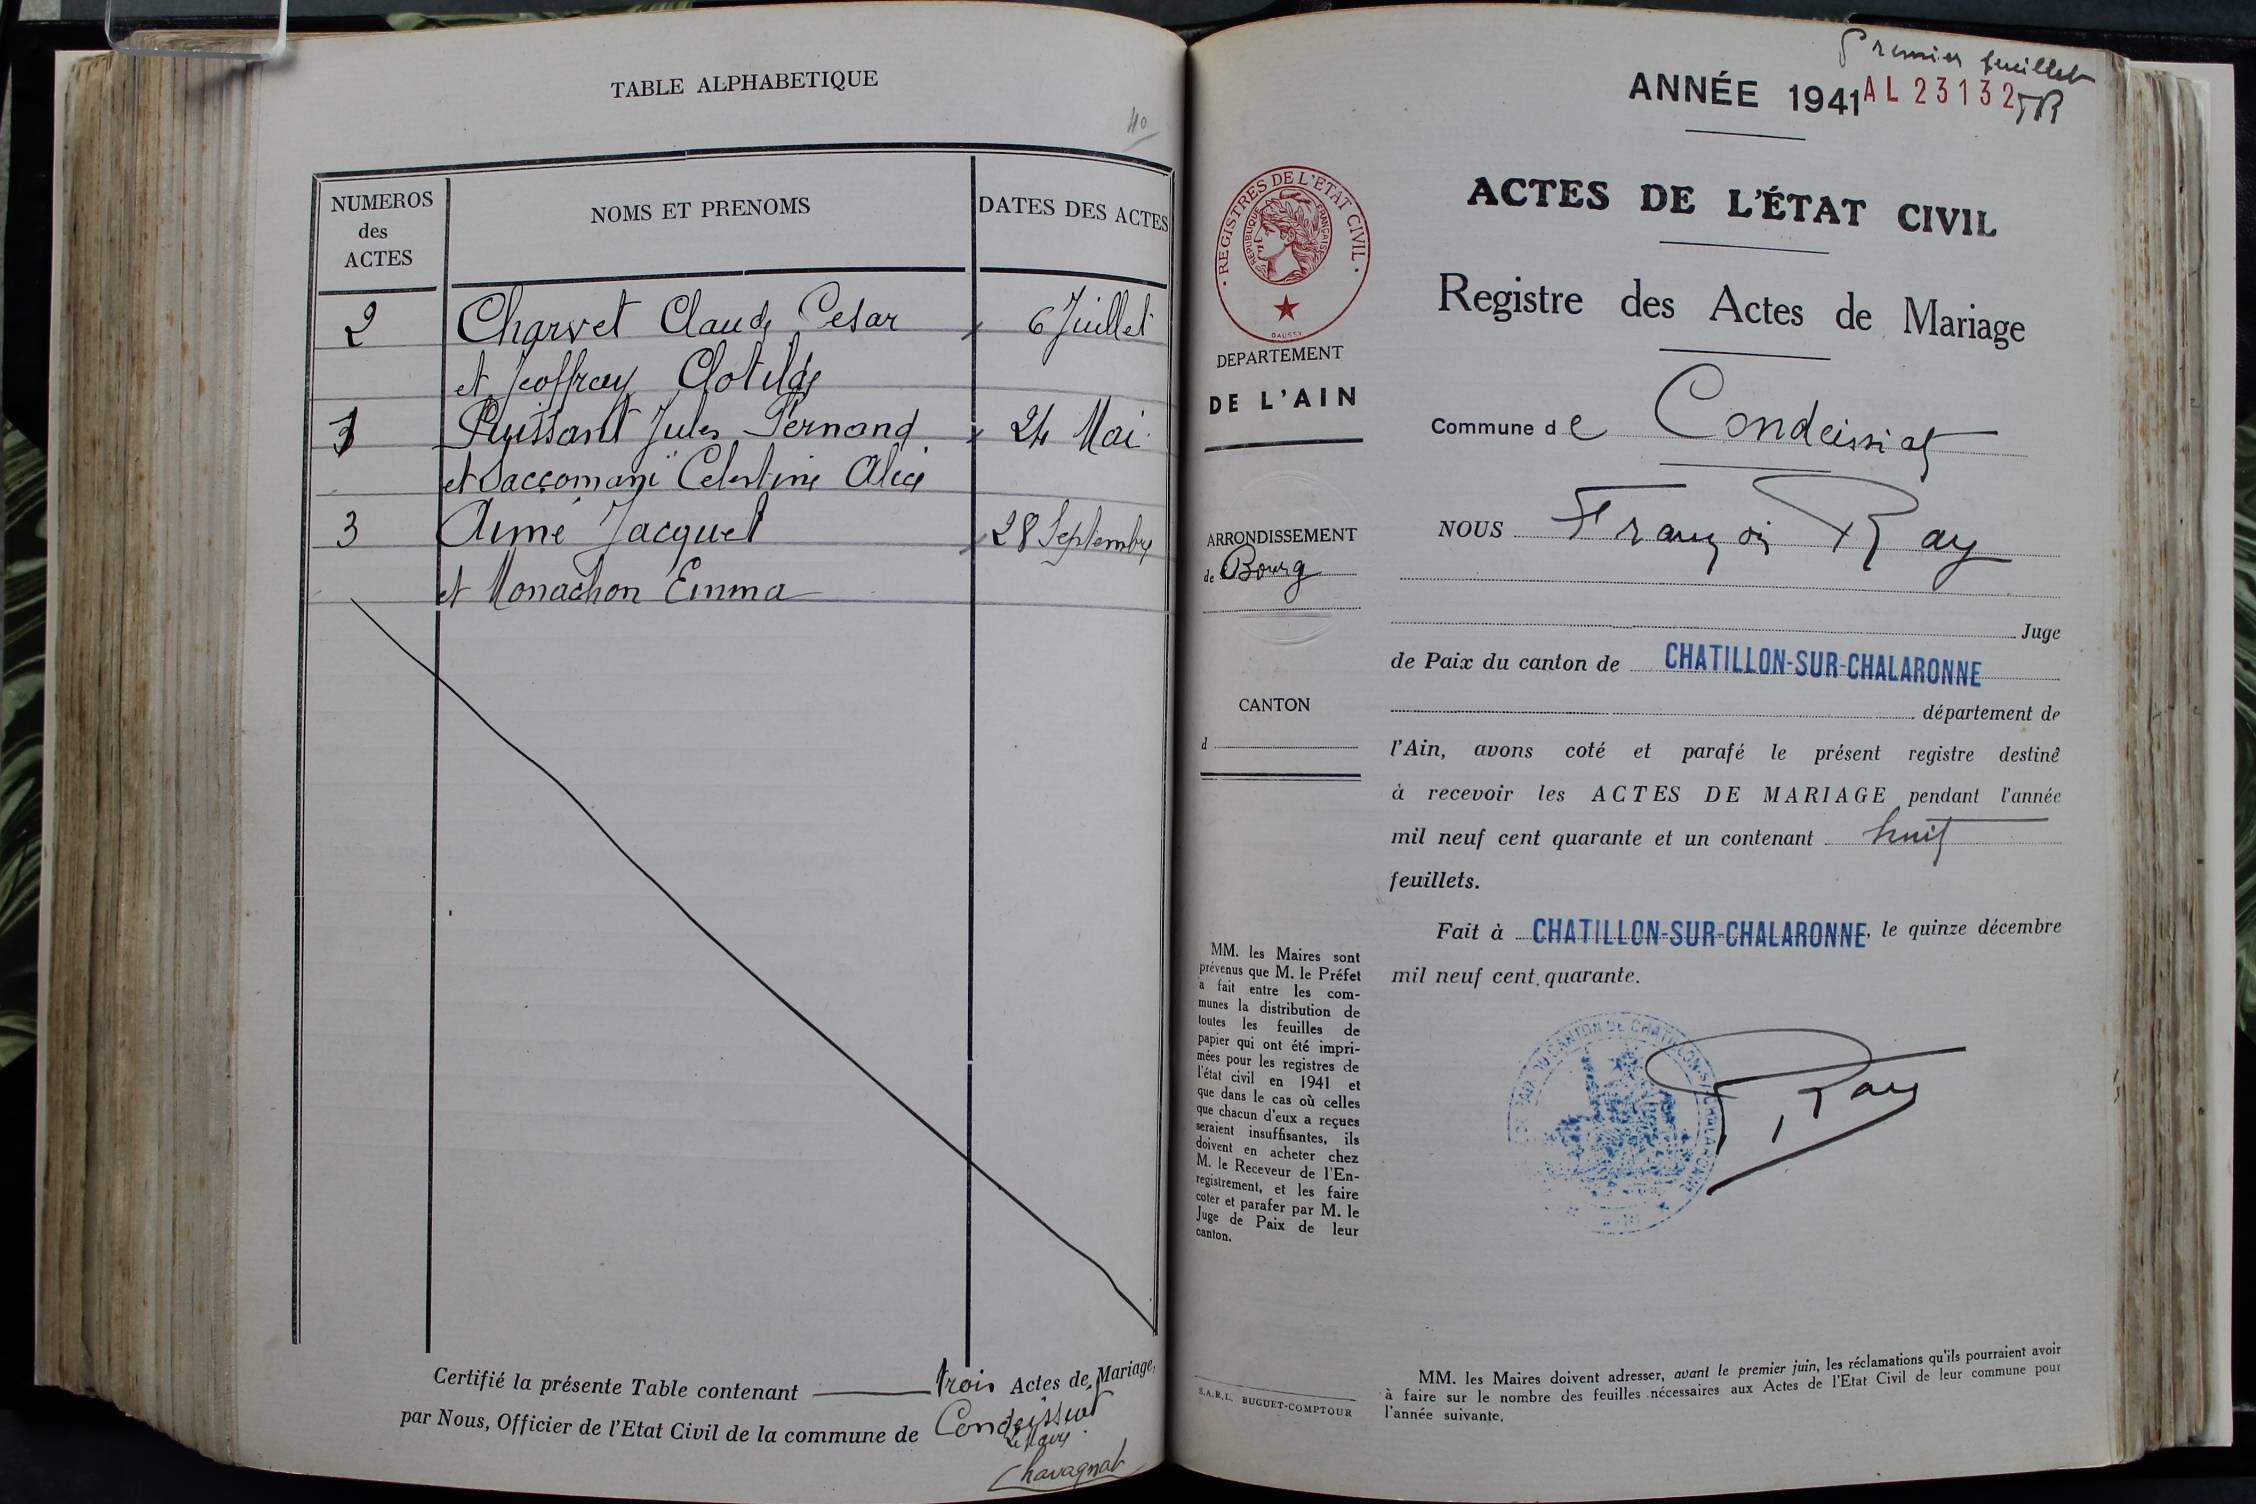 TABLE ALPHABETIQUE
40
NUMEROS
des
ACTES
NOMS ET PRENOMS
DATES DES ACTES
2 Charvet Claude Cesar 6 Juillet
et Jeoffray Clotilde
1 Puissant Jules Fernand 24 Mai
et Saccomani Celestine Alice
3 Aimé Jacquet 28 Septembre
et Monachon Emma
Certifié la présente Table contenant trois Actes de Mariage,
par Nous, Officier de l'Etat Civil de la commune de Condeissiat
Le Maire
Chavagnat
Premier feuillet
ANNÉE 1941
AL 23132
ACTES DE L'ÉTAT CIVIL
Registre des Actes de Mariage
Commune de Condeissiat
NOUS François Ray
Juge
de Paix du canton de CHATILLON-SUR-CHALARONNE
département de
l'Ain, avons coté et parafé le présent registre destiné
à recevoir les ACTES DE MARIAGE pendant l'année
mil neuf cent quarante et un contenant huit
feuillets.
Fait à CHATILLON-SUR-CHALARONNE, le quinze décembre
mil neuf cent quarante.
Ray
REGISTRES DE L'ÉTAT CIVIL
RÉPUBLIQUE FRANÇAISE
DAUSSY
DEPARTEMENT
DE L'AIN
ARRONDISSEMENT
de Bourg
CANTON
d
MM. les Maires sont
prévenus que M. le Préfet
a fait entre les com-
munes la distribution de
toutes les feuilles de
papier qui ont été impri-
mées pour les registres de
l'état civil en 1941 et
que dans le cas où celles
que chacun d'eux a reçues
seraient insuffisantes, ils
doivent en acheter chez
M. le Receveur de l'En-
registrement, et les faire
coter et parafer par M. le
Juge de Paix de leur
canton.
S.A.R.L. BUGUET-COMPTOUR
MM. les Maires doivent adresser, avant le premier juin, les réclamations qu'ils pourraient avoir
à faire sur le nombre des feuilles nécessaires aux Actes de l'Etat Civil de leur commune pour
l'année suivante.